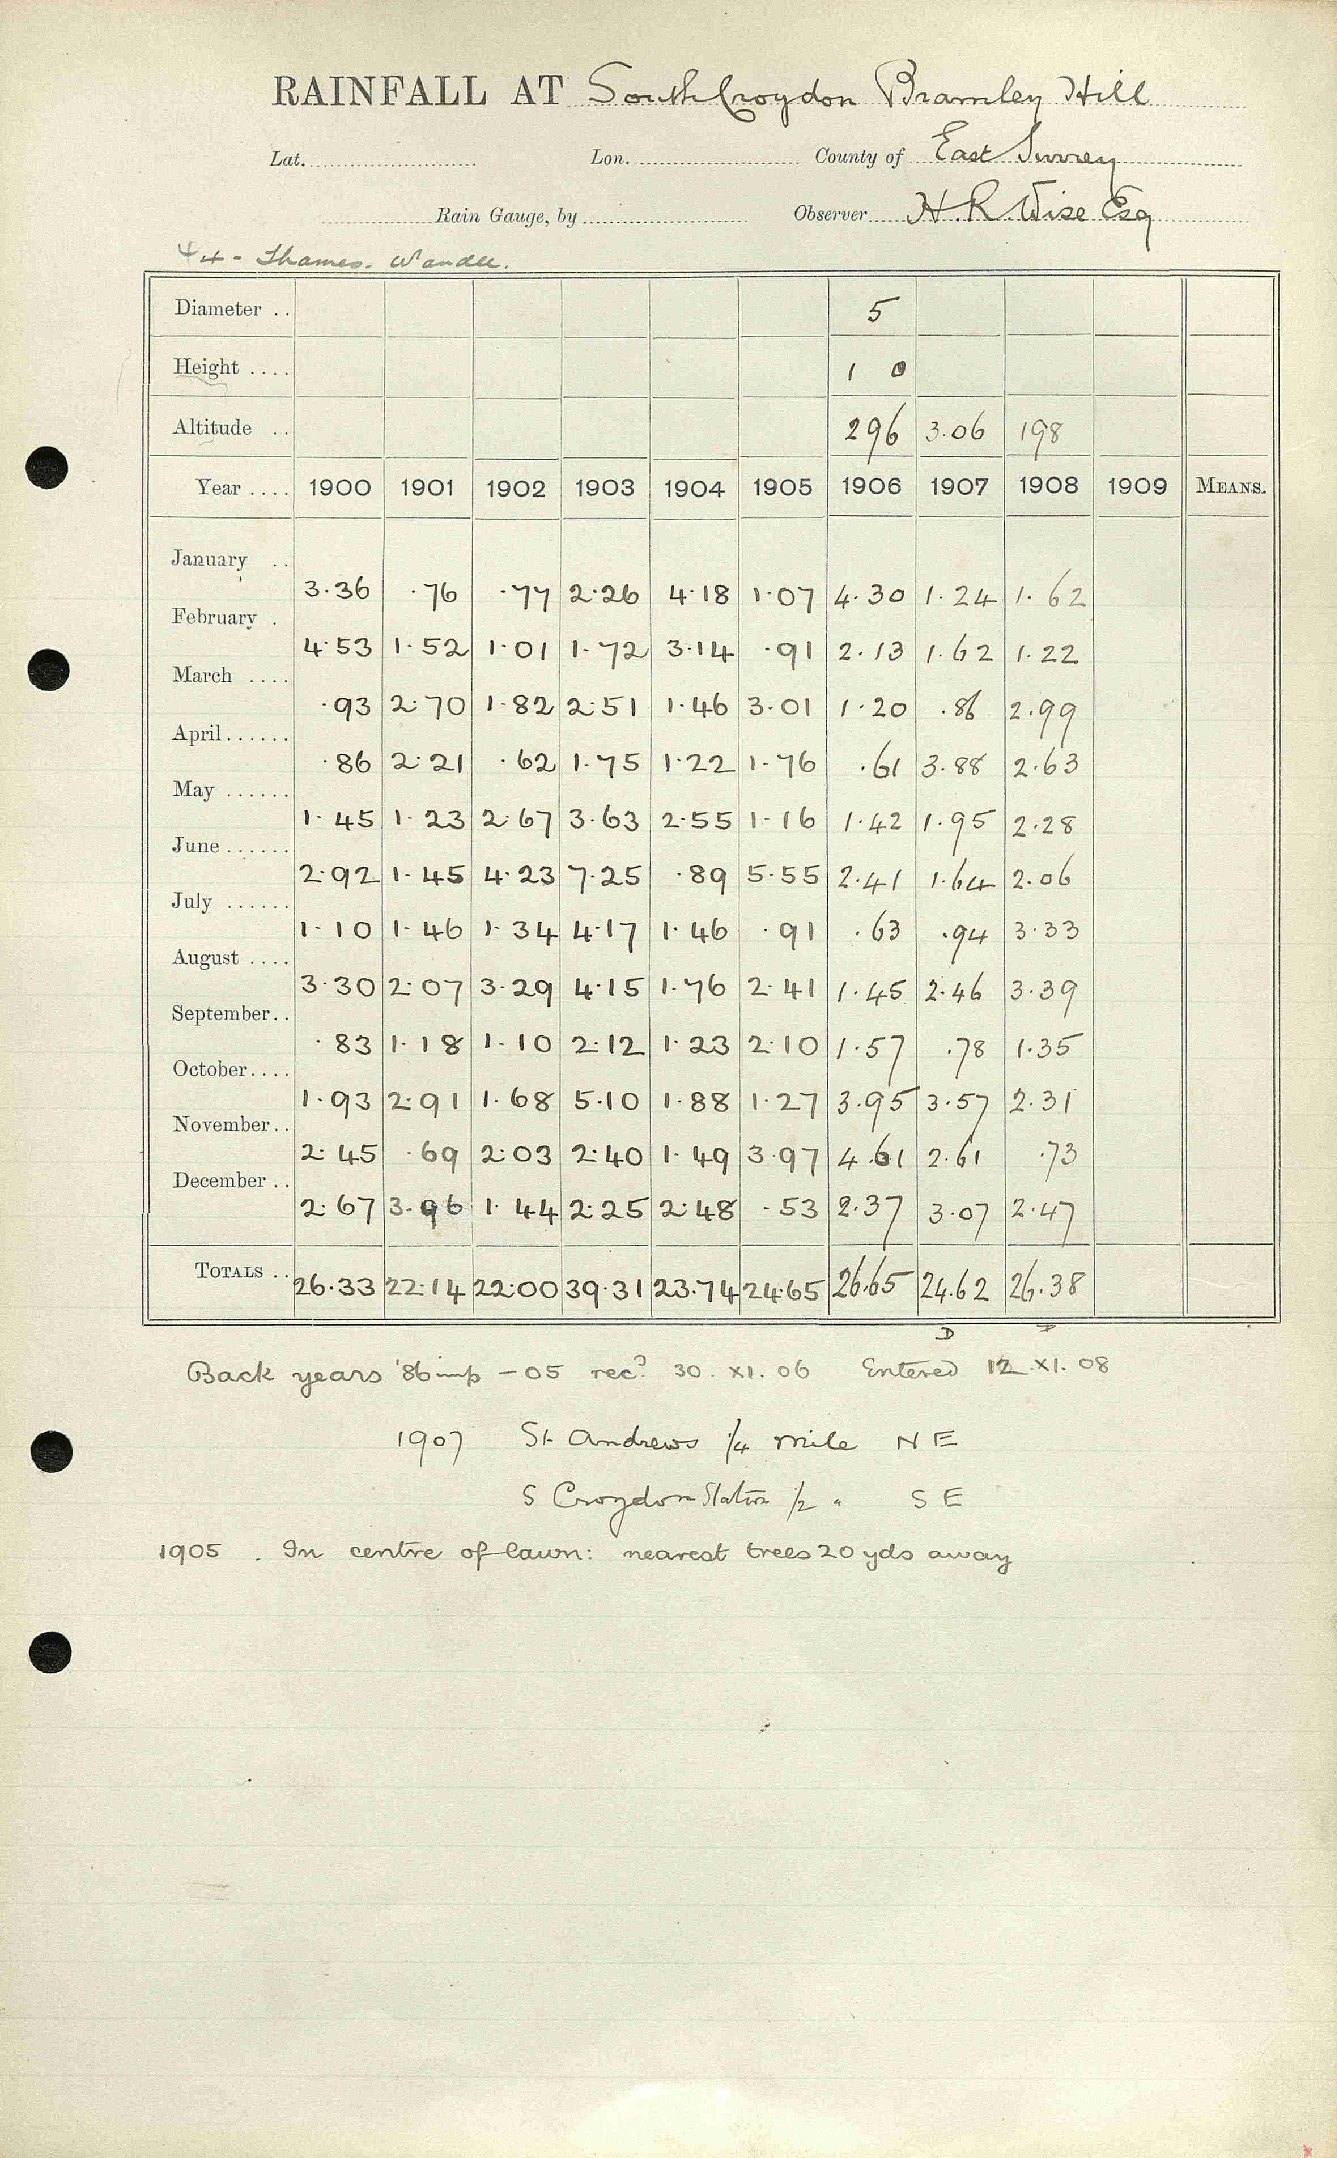 RAINFALL AT South Croydon Bramley Hill
Lat. Lon. County of East Surrey
Rain Gauge, by Observer H. R. Wise Esq
44 - Thames. Wandle.
Diameter .. 5
Height .... 1 0
Altitude .. 296 3.06 198
Year .... 1900 1901 1902 1903 1904 1905 1906 1907 1908 1909 MEANS.
January .. 3.36 .76 .77 2.26 4.18 1.07 4.30 1.24 1.62
February . 4.53 1.52 1.01 1.72 3.14 .91 2.13 1.62 1.22
March .... .93 2.70 1.82 2.51 1.46 3.01 1.20 .86 2.99
April...... .86 2.21 .62 1.75 1.22 1.76 .61 3.88 2.63
May ...... 1.45 1.23 2.67 3.63 2.55 1.16 1.42 1.95 2.28
June ...... 2.92 1.45 4.23 7.25 .89 5.55 2.41 1.64 2.06
July ...... 1.10 1.46 1.34 4.17 1.46 .91 .63 .94 3.33
August .... 3.30 2.07 3.29 4.15 1.76 2.41 1.45 2.46 3.39
September.. .83 1.18 1.10 2.12 1.23 2.10 1.57 .78 1.35
October.... 1.93 2.91 1.68 5.10 1.88 1.27 3.95 3.57 2.31
November.. 2.45 .69 2.03 2.40 1.49 3.97 4.61 2.61 .73
December .. 2.67 3.96 1.44 2.25 2.48 .53 2.37 3.07 2.47
TOTALS .. 26.33 22.14 22.00 39.31 23.74 24.65 26.65 24.62 26.38
D
Back years '86 imp - 05 recd 30. XI. 06 Entered 12. XI. 08
1907 St Andrews 1/4 mile N E
S Croydon Station 1/2 " S E
1905 . In centre of lawn: nearest trees 20 yds away